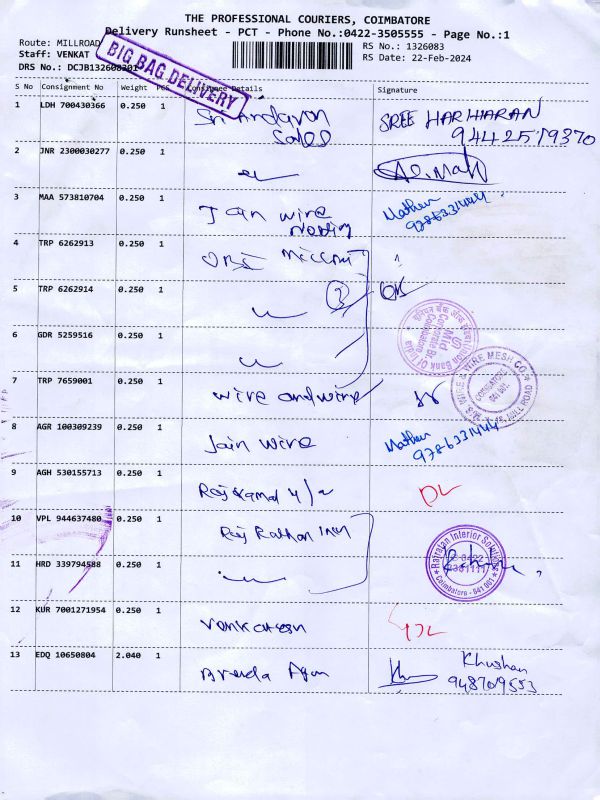 THE PROFESSIONAL COURIERS, COIMBATORE
Delivery Runsheet - PCT - Phone No.:0422-3505555 - Page No.:1
Route: MILLROAD
RS No.: 1326083
Staff: VENKAT
RS Date: 22-Feb-2024
DRS No.: DCJB132608301
BIG BAG DELIVERY
S No Consignment No Weight PCS Consignee Details Signature
1 LDH 700430366 0.250 1 Sri Sales SREE HARIHARAN
9442519370
2 JNR 2300030277 0.250 1
3 MAA 573810704 0.250 1 Jain wire Mathew
9786331444
4 TRP 6262913 0.250 1
5 TRP 6262914 0.250 1 3
6 GDR 5259516 0.250 1
Union Bank Of India
Mid Corporate Br
Coimbatore
7 TRP 7659001 0.250 1 wire and wire
WIRE & WIRE MESH CO.
COIMBATORE
641 001
MILL ROAD
8 AGR 100309239 0.250 1 Jain wire Mathew
9786331444
9 AGH 530155713 0.250 1 Raj Kamal DL
10 VPL 944637480 0.250 1 Raj Rathan Inn
Rajratan Interior Solution
Coimbatore - 641 001
11 HRD 339794588 0.250 1
12 KUR 7001271954 0.250 1 Venkatesh
13 EDQ 10650804 2.040 1 Khushan
9487019553